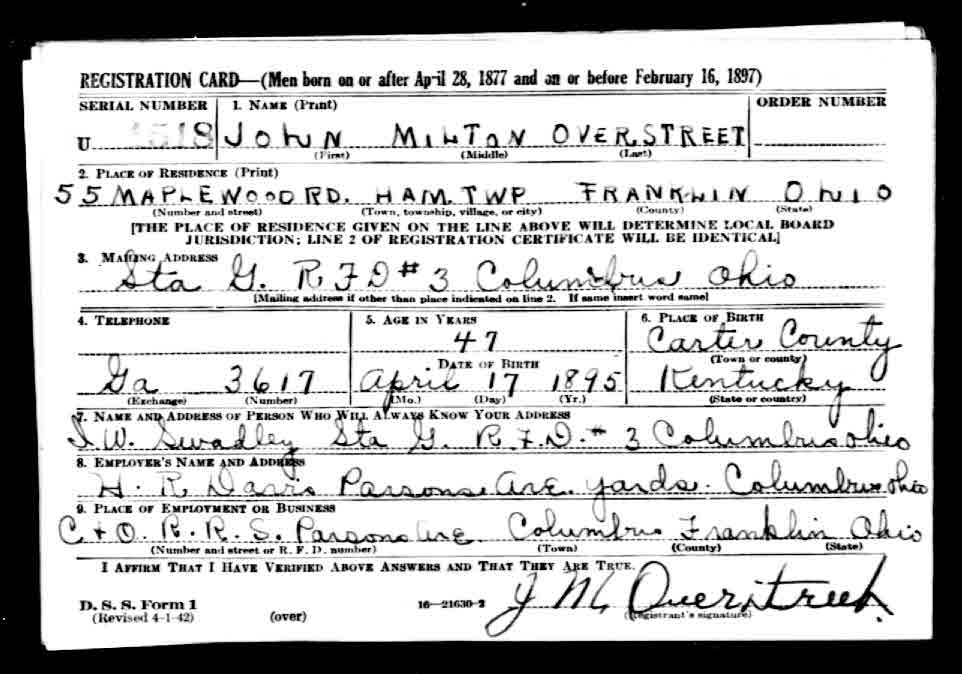 REGISTRATION CARD—(Men born on or after April 28, 1877 and on or before February 16, 1897)
SERIAL NUMBER 1. NAME (Print) ORDER NUMBER
U 1518 JOHN MILTON OVERSTREET
(First) (Middle) (Last)
2. PLACE OF RESIDENCE (Print)
55 MAPLEWOOD RD. HAM. TWP FRANKLIN OHIO
(Number and street) (Town, township, village, or city) (County) (State)
[THE PLACE OF RESIDENCE GIVEN ON THE LINE ABOVE WILL DETERMINE LOCAL BOARD
JURISDICTION; LINE 2 OF REGISTRATION CERTIFICATE WILL BE IDENTICAL]
3. MAILING ADDRESS
Sta G. R F D # 3 Columbus Ohio
[Mailing address if other than place indicated on line 2. If same insert word same]
4. TELEPHONE 5. AGE IN YEARS 6. PLACE OF BIRTH
47 Carter County
DATE OF BIRTH (Town or county)
Ga 3617 April 17 1895 Kentucky
(Exchange) (Number) (Mo.) (Day) (Yr.) (State or country)
7. NAME AND ADDRESS OF PERSON WHO WILL ALWAYS KNOW YOUR ADDRESS
W. Swadley Sta G. R.F.D. # 3 Columbus Ohio
8. EMPLOYER'S NAME AND ADDRESS
H. R Davis Parsons Ave. yards. Columbus Ohio
9. PLACE OF EMPLOYMENT OR BUSINESS
C & O. R. R. S. Parsons Ave Columbus Franklin Ohio
(Number and street or R. F. D. number) (Town) (County) (State)
I AFFIRM THAT I HAVE VERIFIED ABOVE ANSWERS AND THAT THEY ARE TRUE.
D. S. S. Form 1
(Revised 4-1-42) (over) 16—21630-2 J M Overstreet.
(Registrant's signature)